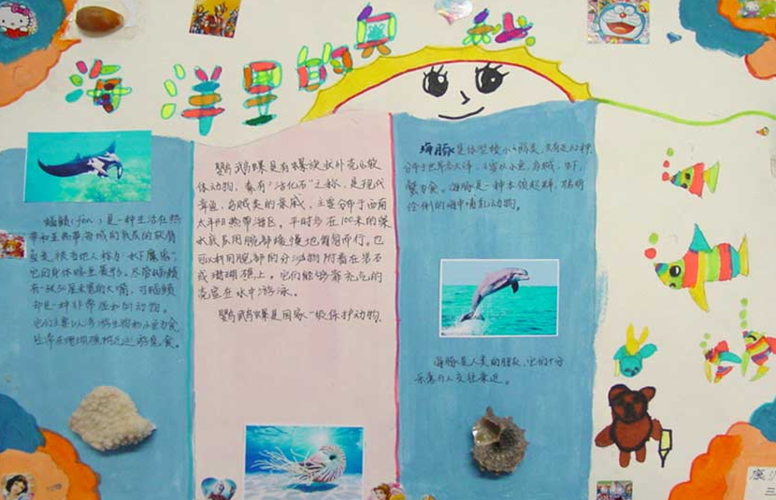 海洋里的奥秘
蝠鲼(fèn)是一种生活在热
带和亚热带海域的
它的身体略呈菱形。尽管蝠鲼
却是一种非常温和的动物。
鹦鹉螺是有螺旋状外壳的软
体动物，素有“活化石”之称，是现代
章鱼、乌贼类的亲戚，主要分布于西南
太平洋热带海区。平时多在100米的深
水底层用腕部缓慢地匍匐而行。也
可以利用腕部的分泌物附着在岩石
或珊瑚礁上。它们能够靠充气的
壳室在水中游泳。
鹦鹉螺是国家一级保护动物。
海豚是体型较小的鲸类，共有近62种，
分布于世界各大洋，主要以小鱼、乌贼、虾、
蟹为食。海豚是一种本领超群、聪明
伶俐的海中哺乳动物。
海豚是人类的朋友，它们十分
乐意与人交往亲近。